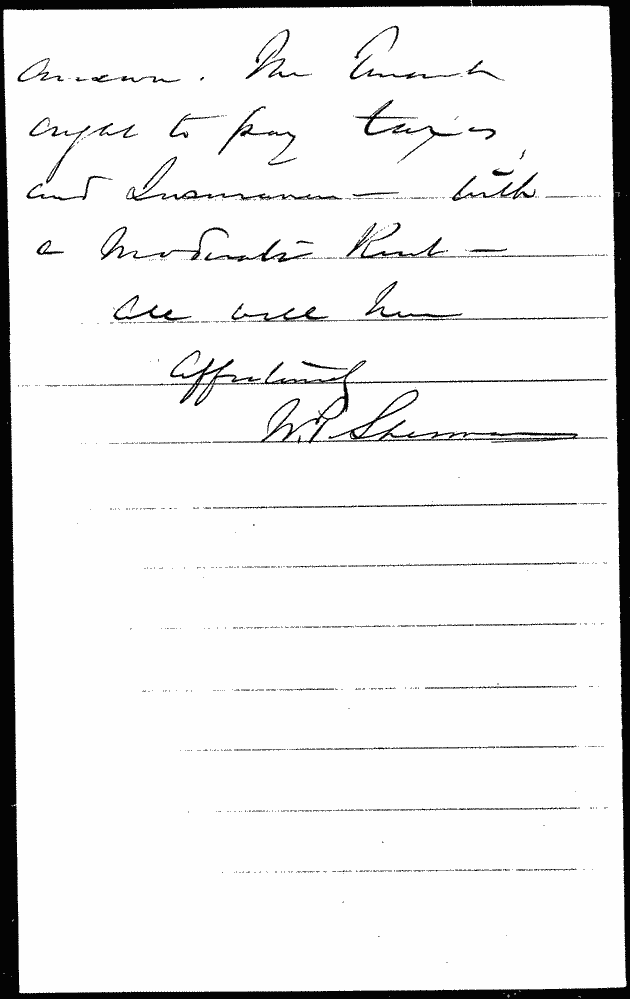 answer. The Tenant
ought to pay taxes,
and Insurance — with
a Moderate Rent —
All well here
Affectionately
W. T. Sherman